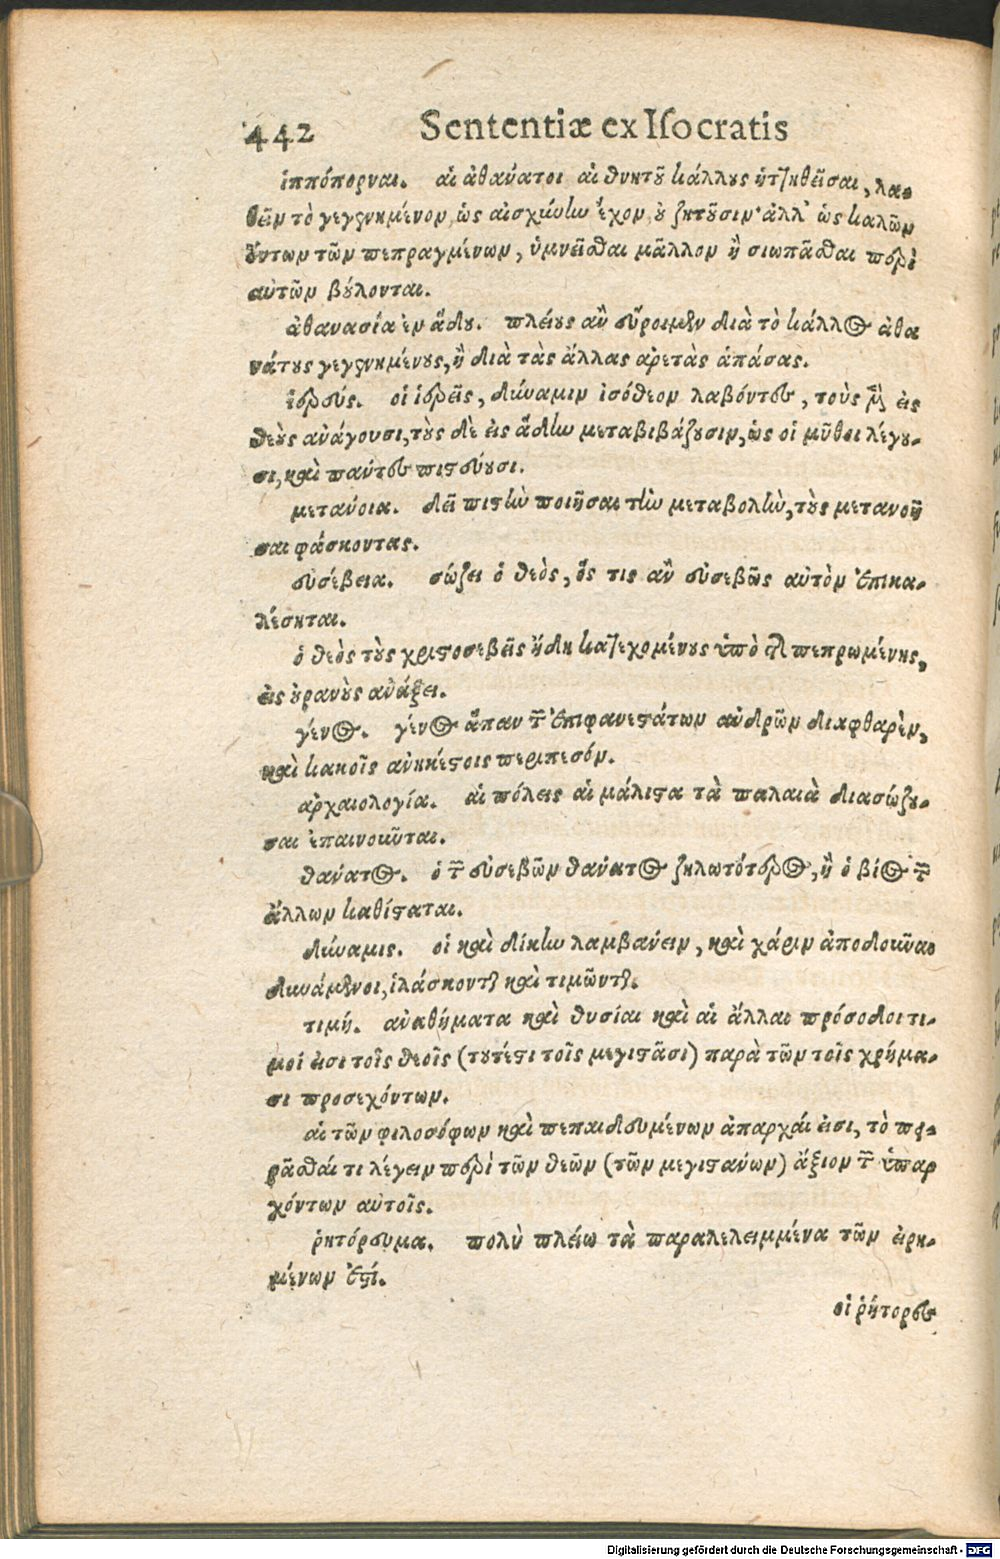 442 Sententiæ ex Iſocratis
ἱππόπορναι. αἱ ἀθάνατοι αἱ θνητοῦ κάλλους ἡττηθεῖσαι, λα-
θεῖν τὸ γεγενημένον, ὡς αἰσχύνην ἔχον, οὐ ζητοῦσιν· ἀλλ' ὡς καλῶν
ὄντων τῶν πεπραγμένων, ὑμνεῖσθαι μᾶλλον ἢ σιωπᾶσθαι περὶ
αὐτῶν βούλονται.
ἀθανασία ἐν ᾅδου. πλείους ἂν εὕροιμεν διὰ τὸ κάλλος ἀθα
νάτους γεγενημένους, ἢ διὰ τὰς ἄλλας ἀρετὰς ἁπάσας.
ἱερεύς. οἱ ἱερεῖς, δύναμιν ἰσόθεον λαβόντες, τοὺς μὲν εἰς
θεοὺς ἀνάγουσι, τοὺς δὲ εἰς ᾅδην μεταβιβάζουσιν, ὡς οἱ μῦθοι λέγου-
σι, καὶ πάντες πιστεύουσι.
μετάνοια. δεῖ πιστὴν ποιῆσαι τὴν μεταβολὴν, τοὺς μετανοῆ
σαι φάσκοντας.
εὐσέβεια. σώζει ὁ θεὸς, ὅς τις ἂν εὐσεβῶς αὐτὸν ἐπικα-
λέσηται.
ὁ θεὸς τοὺς χριστοσεβεῖς ἤδη κατεχομένους ὑπὸ τῆς πεπρωμένης,
εἰς οὐρανοὺς ἀνάξει.
γένος. γένος ἅπαν τῶν ἐπιφανεστάτων ἀνδρῶν διαφθαρὲν,
καὶ κακοῖς ἀνηκέστοις περιπεσόν.
ἀρχαιολογία. αἱ πόλεις αἱ μάλιστα τὰ παλαιὰ διασώζου-
σαι ἐπαινοῦνται.
θάνατος. ὁ τῶν εὐσεβῶν θάνατος ζηλωτότερος, ἢ ὁ βίος τῶν
ἄλλων καθίσταται.
δύναμις. οἱ καὶ δίκην λαμβάνειν, καὶ χάριν ἀποδοῦναι
δυνάμενοι, ἱλάσκονται καὶ τιμῶνται.
τιμή. ἀναθήματα καὶ θυσίαι καὶ αἱ ἄλλαι πρόσοδοι τι-
μοί εἰσι τοῖς θεοῖς (τουτέστι τοῖς μεγιστᾶσι) παρὰ τῶν τοῖς χρήμα-
σι προσεχόντων.
αἱ τῶν φιλοσόφων καὶ πεπαιδευμένων ἀπαρχαί εἰσι, τὸ πει-
ρᾶσθαί τι λέγειν περὶ τῶν θεῶν (τῶν μεγιστάνων) ἄξιον τῶν ὑπαρ
χόντων αὐτοῖς.
ῥητόρευμα. πολὺ πλείω τὰ παραλελειμμένα τῶν εἰρη-
μένων ἐστί.
οἱ ῥήτορες
Digitalisierung gefördert durch die Deutsche Forschungsgemeinschaft - DFG